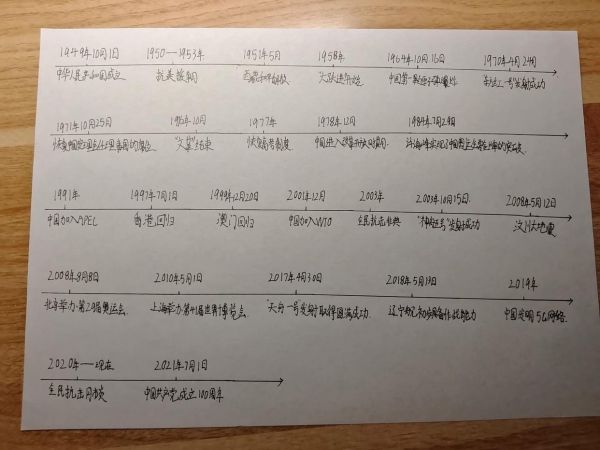 1949年10月1日 1950——1953年 1951年5月 1958年 1964年10月16日 1970年4月24日
中华人民共和国成立 抗美援朝 西藏和平解放 大跃进开始 中国第一颗原子弹爆炸 东方红一号发射成功
1971年10月25日 1976年10月 1977年 1978年12月 1984年7月29日
恢复中国在联合国的席位 "文革"结束 恢复高考制度 中国进入改革开放时期 许海峰实现了中国奥运金牌零的突破
1991年 1997年7月1日 1999年12月20日 2001年12月 2003年 2003年10月15日 2008年5月12日
中国加入APEC 香港回归 澳门回归 中国加入WTO 全民抗击非典 "神舟五号"发射成功 汶川大地震
2008年8月8日 2010年5月1日 2017年4月30日 2018年5月13日 2019年
北京举办第29届奥运会 上海举办第41届世界博览会 "天舟一号"发射取得圆满成功 辽宁舰初步具备作战能力 中国发明5G网络
2020年——现在 2021年7月1日
全民抗击肺炎 中国共产党成立100周年